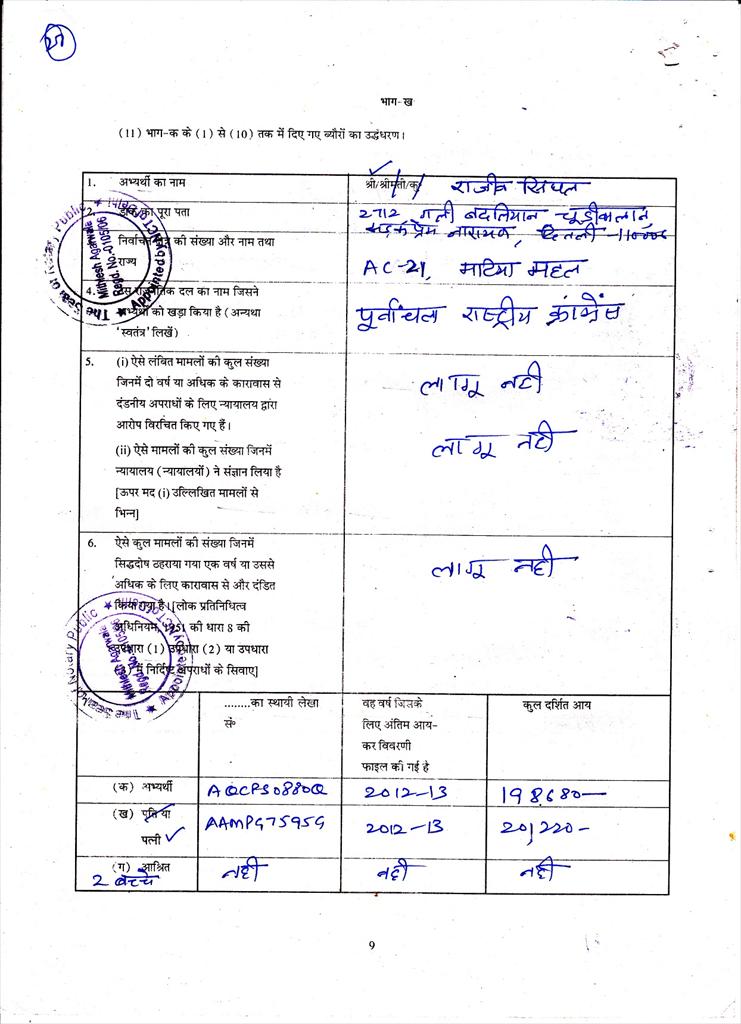 27
भाग-ख
(11) भाग-क के (1) से (10) तक में दिए गए ब्यौरों का उद्धंधरण।
1. अभ्यर्थी का नाम
श्री/श्रीमती/कु
राजीव सिंघल
2. का पूरा पता
2712 गली बदलियान चूड़ीवालान,
सड़क प्रेम नारायण, दिल्ली-110006
की संख्या और नाम तथा
राज्य
AC-21, मटिया महल
4. दल का नाम जिसने
अभ्यर्थी को खड़ा किया है (अन्यथा
'स्वतंत्र' लिखें)
पूर्वांचल राष्ट्रीय कांग्रेस
5. (i) ऐसे लंबित मामलों की कुल संख्या
जिनमें दो वर्ष या अधिक के कारावास से
दंडनीय अपराधों के लिए न्यायालय द्वारा
आरोप विरचित किए गए हैं।
लागू नही
(ii) ऐसे मामलों की कुल संख्या जिनमें
न्यायालय (न्यायालयों) ने संज्ञान लिया है
[ऊपर मद (i) उल्लिखित मामलों से
भिन्न]
लागू नही
6. ऐसे कुल मामलों की संख्या जिनमें
सिद्धदोष ठहराया गया एक वर्ष या उससे
अधिक के लिए कारावास से और दंडित
किया गया है। [लोक प्रतिनिधित्व
अधिनियम, 1951 की धारा 8 की
उपधारा (1) उपधारा (2) या उपधारा
में निर्दिष्ट अपराधों के सिवाए]
लागू नही
........का स्थायी लेखा
सं॰
वह वर्ष जिसके
लिए अंतिम आय-
कर विवरणी
फाइल की गई है
कुल दर्शित आय
(क) अभ्यर्थी AQCPS0880Q 2012-13 198680—
(ख) पति या
पत्नी
AAMPG7595G 2012-13 201,220-
(ग) आश्रित
2 बच्चे
नही नही नही
The Seal of Notary Public ★ Appointed by
Mithlesh Agarwale
Regd. No. 105/06
Notary Public ★
Mithlesh Agarwale
9